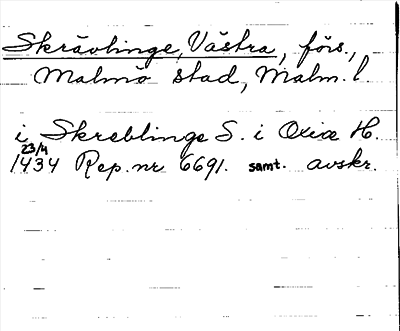 Skrävlinge, Västra, förs.,
Malmö stad, Malm. l.
i Skreblinge S. i Oxiæ H.
23/4
1434 Rep. nr 6691. samt. avskr.